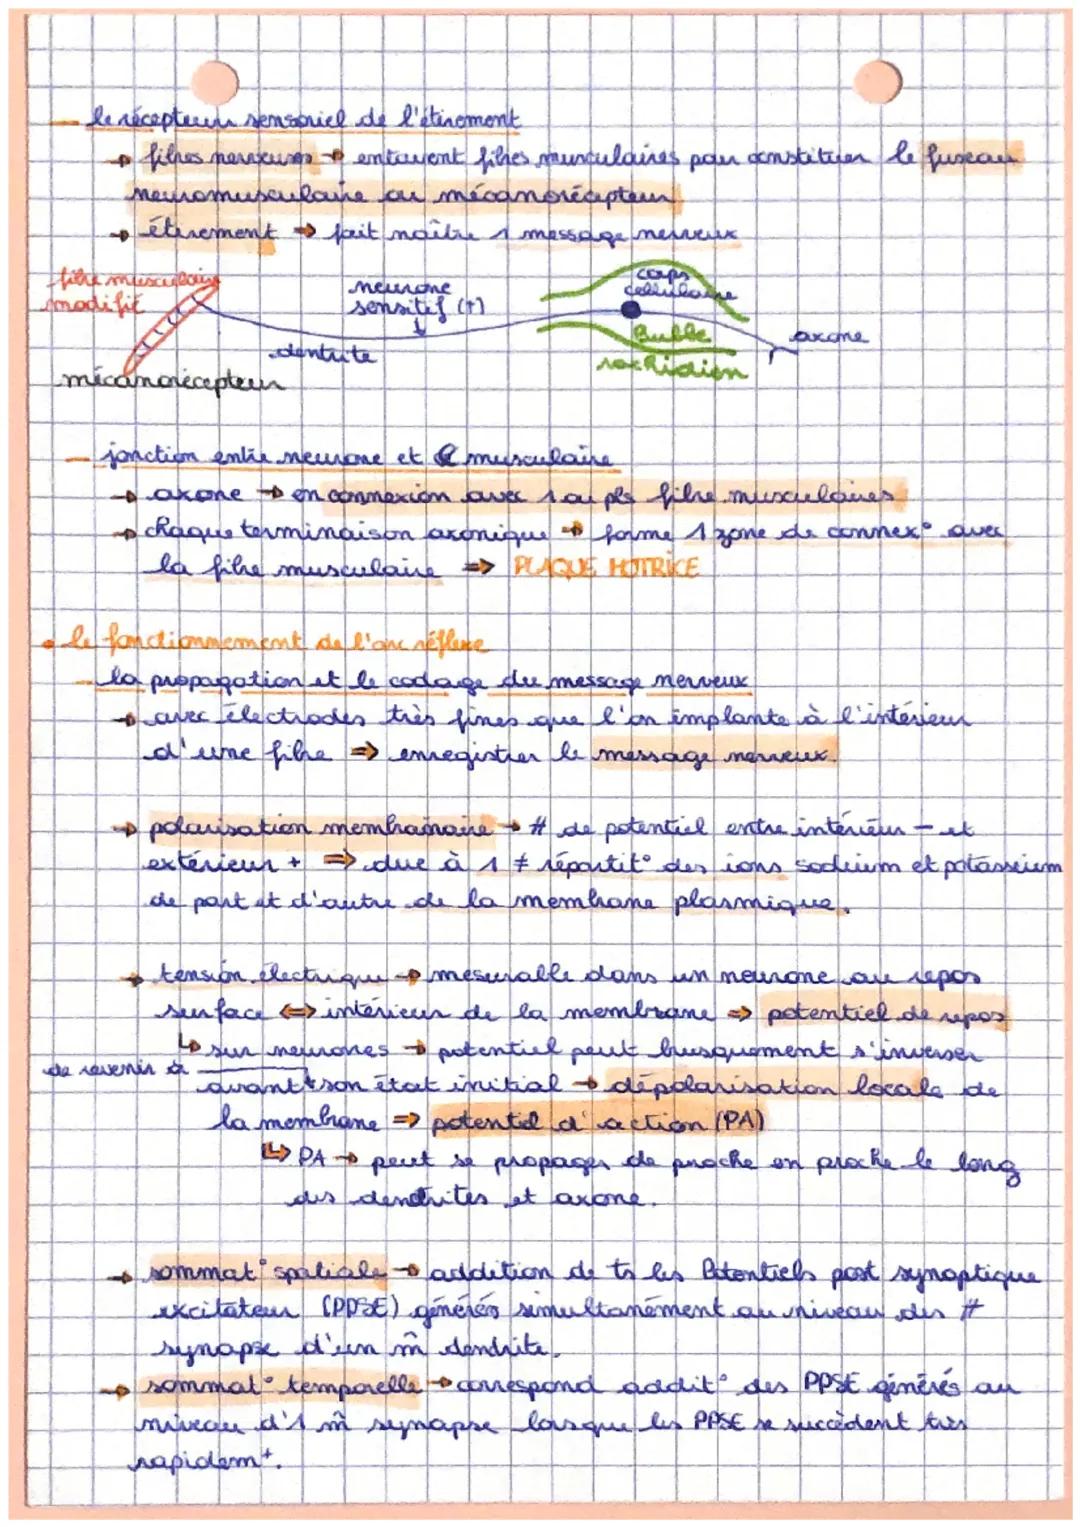 - le récepteur sensoriel de l'étirement
→ fibres nerveuses → entourent fibres musculaires pour constituer le fuseau
neuromusculaire ou mécanorécepteur
→ étirement ⇒ fait naître 1 message nerveux
fibre musculaire
modifié
neurone
sensitif (+)
corps
cellulaire
Bulbe
rachidien
axone
dentrite
mécanorécepteur
- jonction entre neurone et musculaire
→ axone → en connexion avec 1 ou pls fibre musculaires
→ chaque terminaison axonique → forme 1 zone de connex° avec
la fibre musculaire ⇒ PLAQUE MOTRICE
• le fonctionnement de l'arc réflexe
- la propagation et le codage du message nerveux
→ avec électrodes très fines que l'on implante à l'intérieur
d'une fibre ⇒ enregistrer le message nerveux.
→ polarisation membranaire → # de potentiel entre intérieur - et
extérieur + ⇒ due à 1 ≠ répartit° des ions sodium et potassium
de part et d'autre de la membrane plasmique.
→ tension électrique → mesurable dans un neurone au repos
surface ⇔ intérieur de la membrane ⇒ potentiel de repos
↳ sur neurones → potentiel peut brusquement s'inverser
de revenir à
avant son état initial → dépolarisation locale de
la membrane ⇒ potentiel d'action (PA)
↳ PA → peut se propager de proche en proche le long
des dendrites et axone.
→ sommat° spatiale → addition de ts les Potentiels post synaptique
excitateur (PPSE) générés simultanément au niveau des #
synapse d'un m̂ dendrite.
→ sommat° temporelle → correspond addit° des PPSE générés au
niveau d'1 m̂ synapse lorsque les PPSE se succèdent très
rapidem⁺.